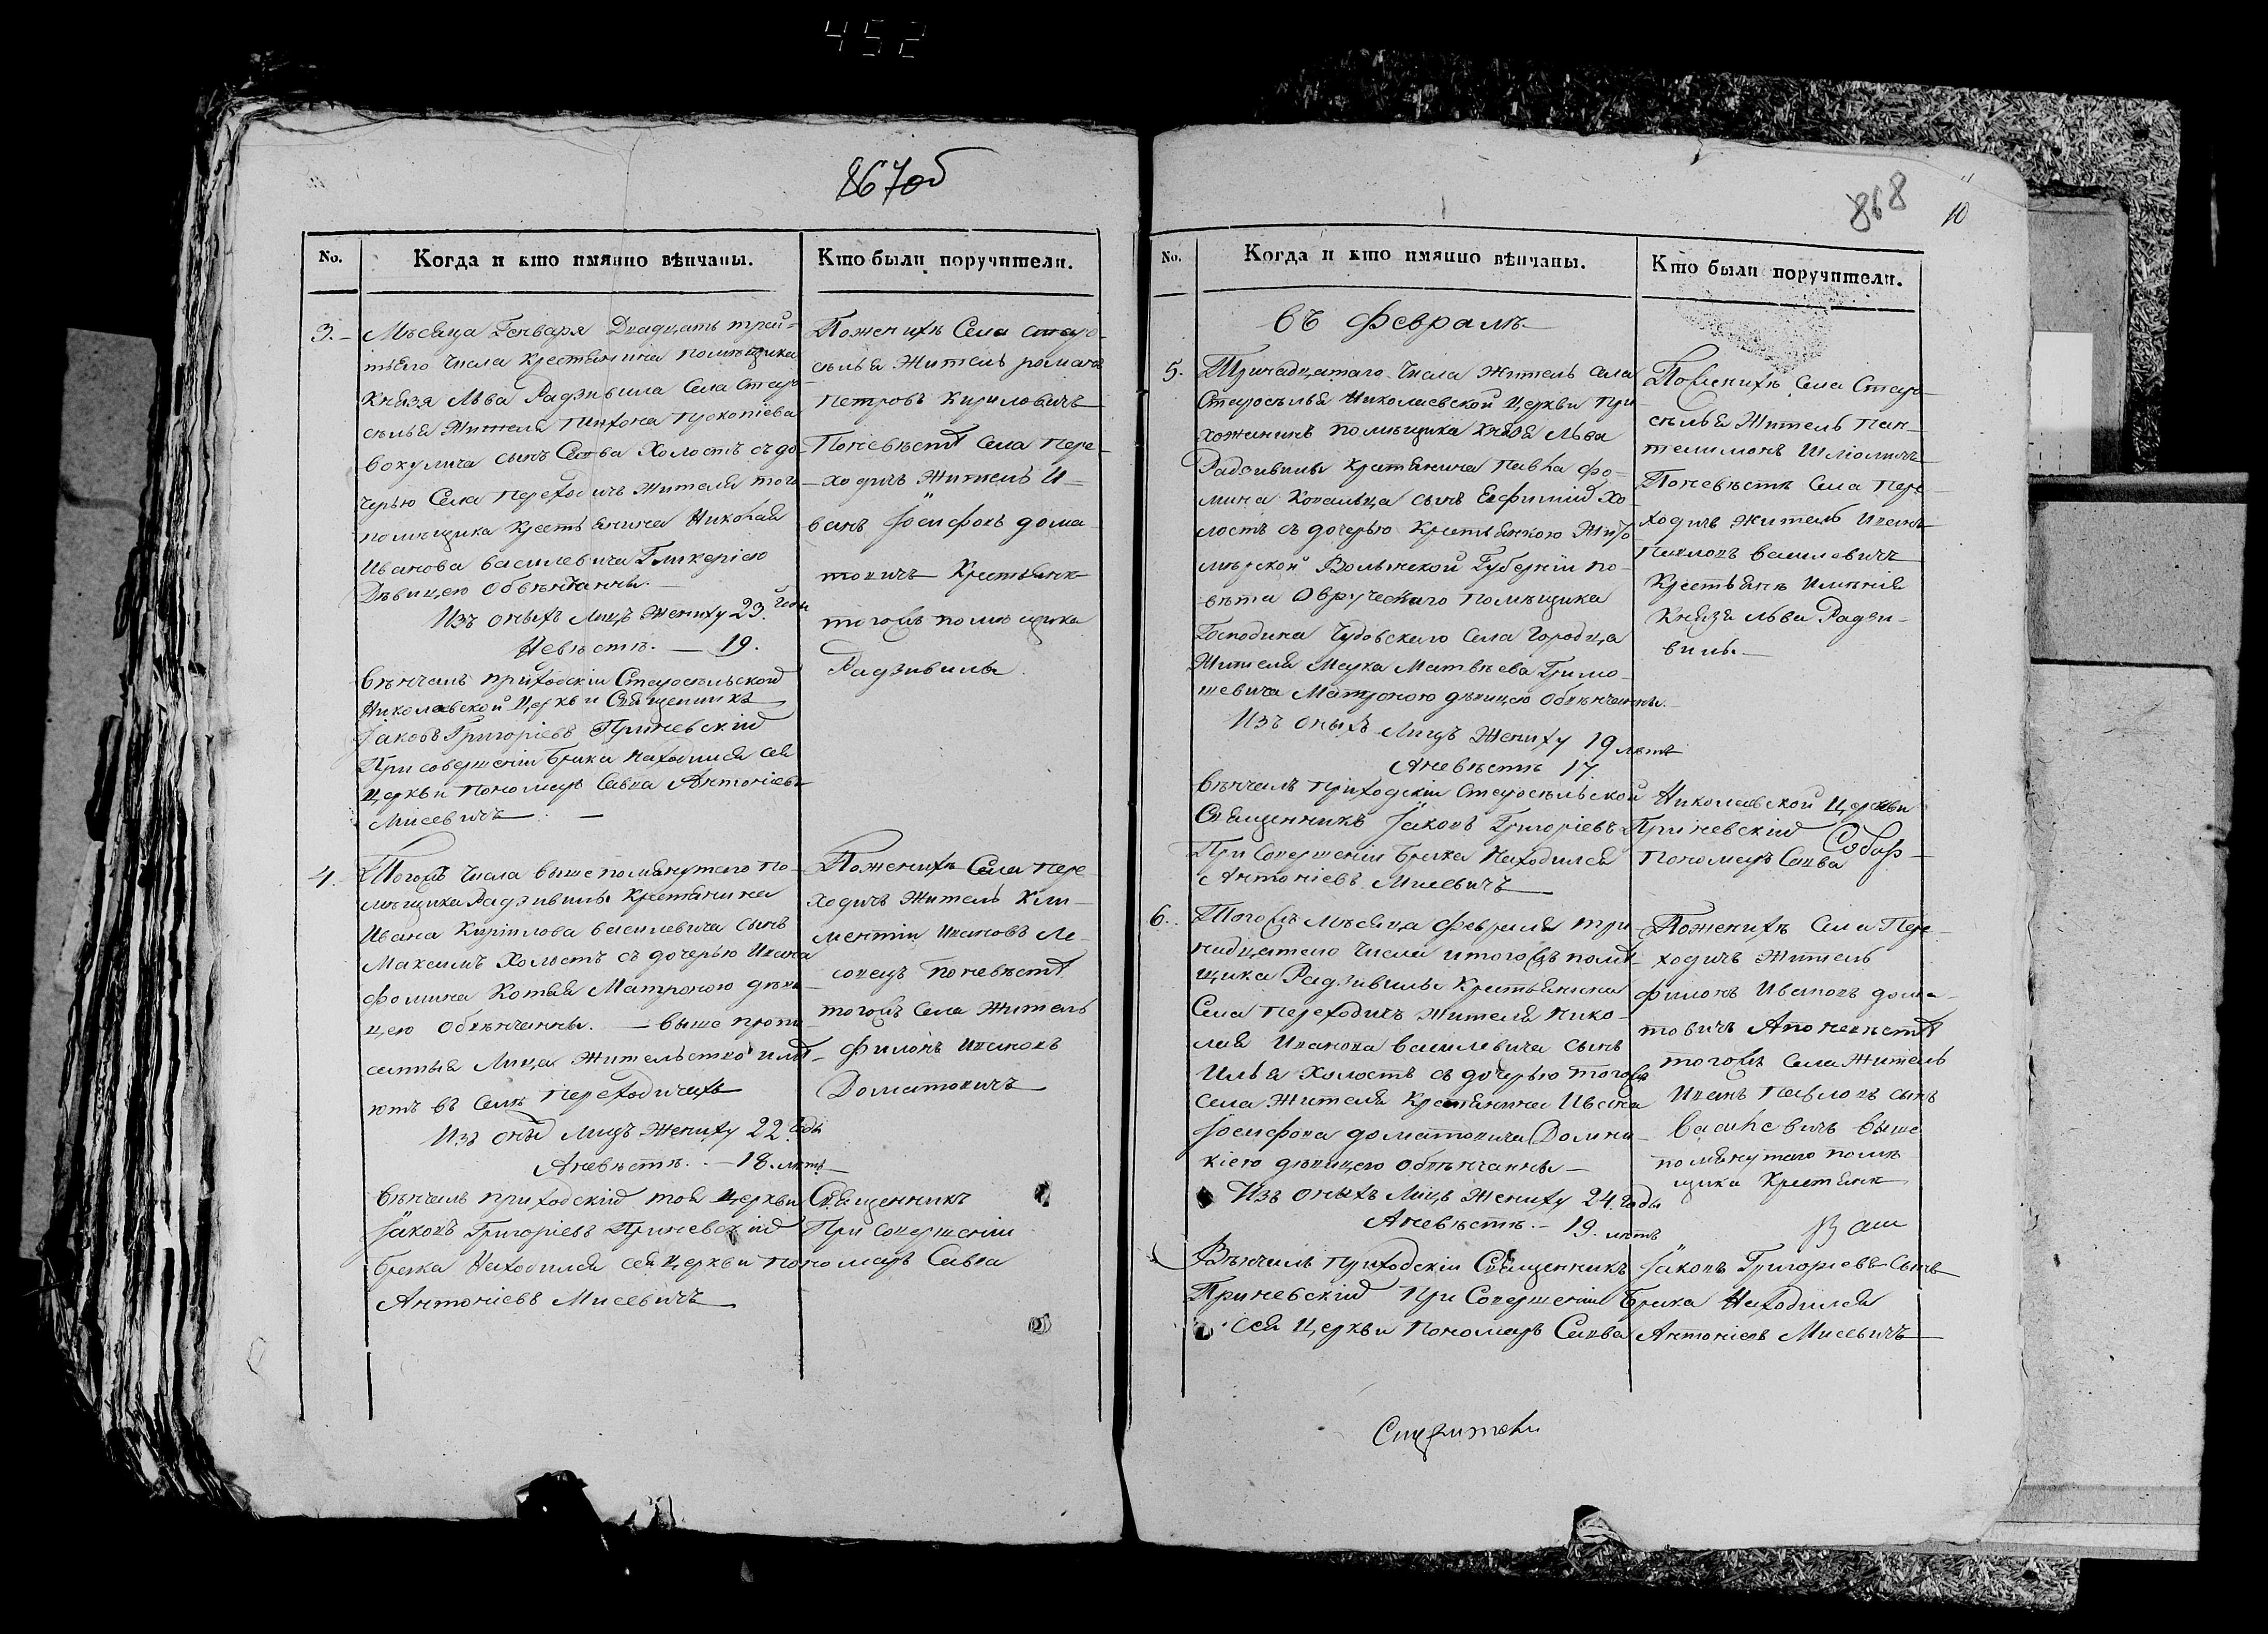 452
867об
No.
Когда и кто имянно вѣнчаны.
Кто были поручители.
3.
Мѣсяца Генваря Двадцать трей-
тьего Числа Крестьянина помѣщика
Князя Льва Радзивила Села Старо-
сѣлья Жителя Тихона Прокопіева
Вокулича сынъ Савва Холостъ съ до-
черью Села Переходичъ жителя того
помѣщика Крестьянина Николая
Иванова Василевича Гликеріею
Дѣвицею обвѣнчанны. —
Изъ оныхъ Лицъ Жениху 23. года
Невѣстѣ. — 19.
Вѣнчалъ приходскій Старосѣльской
Николаевской Церкви Священникъ
Іаковъ Григоріевъ Приневскій
При совершеніи брака находился сея
Церкви пономарь Савва Антоніевъ
Мисевичъ. —
Поженихѣ Села старо-
сѣлья Житель романъ
Петровъ Кириловичъ
Поневѣстѣ Села Пере-
ходичъ Житель И=
ванъ Іосифовъ дома-
товичъ Крестьянѣ
тогожъ помѣщика
Радзивила.
4.
Тогожъ Числа вышепомянутаго по-
мѣщика Радзивила Крестьянина
Ивана Кирилова Василевича сынъ
Максимъ Холостъ съ дочерью Ивана
Фомина Котая Матроною дѣви-
цею обвѣнчанны. — выше пропи-
санныя Лица Жительство имѣ-
ютъ въ Селѣ Переходичахъ
Изъ оныхъ Лицъ Жениху 22. года
Аневѣстѣ. — 18. лѣтъ
Вѣнчалъ приходскій тоя Церкви Священникъ
Іаковъ Григоріевъ Приневскій При совершеніи
брака Находился сея Церкви пономарь Савва
Антоніевъ Мисевичъ
Поженихѣ Села Пере-
ходичъ Житель Кли-
ментій Ивановъ
Поневѣстѣ
тогожъ Села Житель
Филонъ Ивановъ
Доматовичъ
868
10
No.
Когда и кто имянно вѣнчаны.
Кто были поручители.
Въ Февралѣ
5.
Тринадцатаго Числа Житель села
Старосѣлья Николаевской Церкви При-
хожанинъ помѣщика Князя Льва
Радзивилы Крестьянина Павла Фо=
мина Ковальца сынъ Евфимій Хо-
лостъ съ дочерью Крестьянкою Жито-
мѣрской Волынской Губерніи по-
вѣта Овручскаго помѣщика
Господина Чудовскаго Села Городца
Жителя Марка Матвѣева Тимо-
шевича Матроною дѣвицею обвѣнчанны.
Изъ оныхъ Лицъ Жениху 19 лѣтъ
Аневѣстѣ 17.
Вѣнчалъ приходскій Старосѣльской Николаевской Церкви
Священникъ Іаковъ Григоріевъ Приневскій
При Совершеніи брака Находился Пономарь Савва
Антоніевъ Мисевичъ
Поженихѣ Села Старо-
сѣлья Житель Пан-
телимонъ
Поневѣстѣ Села Пере-
ходичъ Житель Иванъ
Павловъ Василевичъ
Крестьянѣ имѣнія
Князя Льва Радзи-
вилы. —
6.
Тогожъ Мѣсяца Февраля три-
надцатаго Числа итогожъ помѣ-
щика Радзивилы Крестьянина
Села Переходичъ Жителя Нико-
лая Иванова Василевича Сынъ
Илья Холостъ съ дочерью тогожъ
Села Жителя Крестьянина Ивана
Іосифова доматовича Домни-
кіею дѣвицею обвѣнчанны —
Изъ оныхъ Лицъ Жениху 24. года
Аневѣстѣ. — 19. лѣтъ
Вѣнчалъ Приходскій Священникъ Іаковъ Григоріевъ Сынъ
Приневскій При Совершеніи брака Находился
Сея Церкви Пономарь Савва Антоніевъ Мисевичъ
Поженихѣ Села Пере-
ходичъ Житель
Филонъ Ивановъ дома-
товичъ Апоневѣстѣ
тогожъ Села Житель
Иванъ Павловъ сынъ
Василевичъ выше
помянутаго помѣ-
щика Крестьянѣ